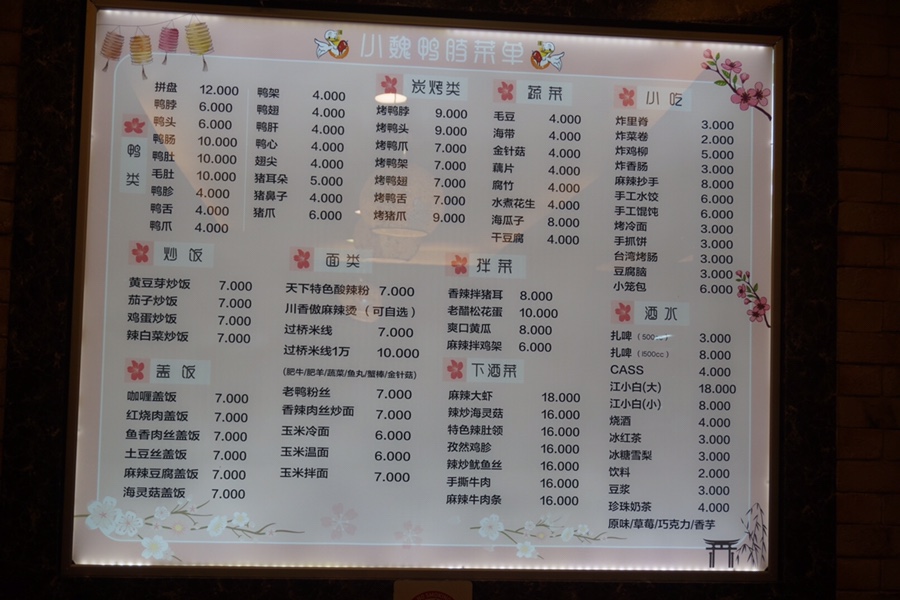 小魏鸭脖菜单
鸭类
拼盘 12.000
鸭脖 6.000
鸭头 6.000
鸭肠 10.000
鸭肚 10.000
毛肚 10.000
鸭胗 4.000
鸭舌 4.000
鸭爪 4.000
鸭架 4.000
鸭翅 4.000
鸭肝 4.000
鸭心 4.000
翅尖 4.000
猪耳朵 5.000
猪鼻子 4.000
猪爪 6.000
炭烤类
烤鸭脖 9.000
烤鸭头 9.000
烤鸭爪 7.000
烤鸭架 7.000
烤鸭翅 7.000
烤鸭舌 7.000
烤猪爪 9.000
蔬菜
毛豆 4.000
海带 4.000
金针菇 4.000
藕片 4.000
腐竹 4.000
水煮花生 4.000
海瓜子 8.000
干豆腐 4.000
小吃
炸里脊 3.000
炸菜卷 2.000
炸鸡柳 5.000
炸香肠 3.000
麻辣抄手 8.000
手工水饺 6.000
手工馄饨 6.000
烤冷面 3.000
手抓饼 3.000
台湾烤肠 3.000
豆腐脑 3.000
小笼包 6.000
炒饭
黄豆芽炒饭 7.000
茄子炒饭 7.000
鸡蛋炒饭 7.000
辣白菜炒饭 7.000
盖饭
咖喱盖饭 7.000
红烧肉盖饭 7.000
鱼香肉丝盖饭 7.000
土豆丝盖饭 7.000
麻辣豆腐盖饭 7.000
海灵菇盖饭 7.000
面类
天下特色酸辣粉 7.000
川香傲麻辣烫（可自选）
过桥米线 7.000
过桥米线1万 10.000
(肥牛/肥羊/蔬菜/鱼丸/蟹棒/金针菇)
老鸭粉丝 7.000
香辣肉丝炒面 7.000
玉米冷面 6.000
玉米温面 6.000
玉米拌面 7.000
拌菜
香辣拌猪耳 8.000
老醋松花蛋 10.000
爽口黄瓜 8.000
麻辣拌鸡架 6.000
下酒菜
麻辣大虾 18.000
辣炒海灵菇 16.000
特色辣肚领 16.000
孜然鸡胗 16.000
辣炒鱿鱼丝 16.000
手撕牛肉 16.000
麻辣牛肉条 16.000
酒水
扎啤 3.000
扎啤（1500cc） 8.000
CASS 4.000
江小白(大) 18.000
江小白(小) 8.000
烧酒 4.000
冰红茶 3.000
冰糖雪梨 3.000
饮料 2.000
豆浆 3.000
珍珠奶茶 4.000
原味/草莓/巧克力/香芋